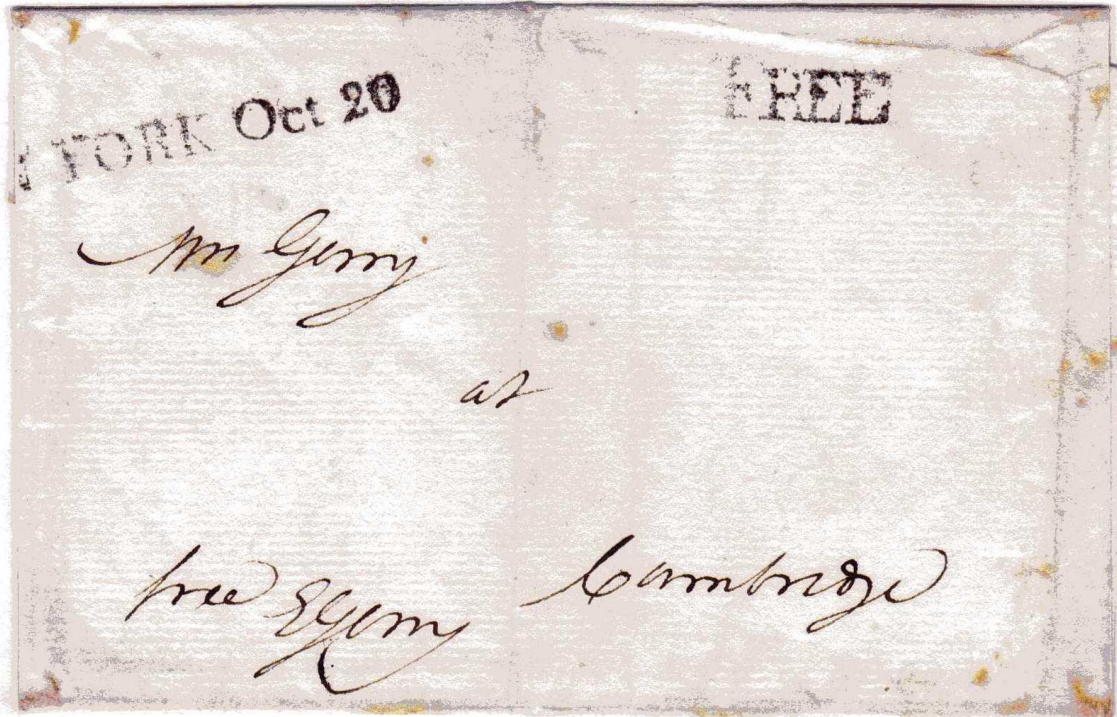 YORK Oct 20
FREE
Mrs Gerry
at
Cambridge
free EGerry